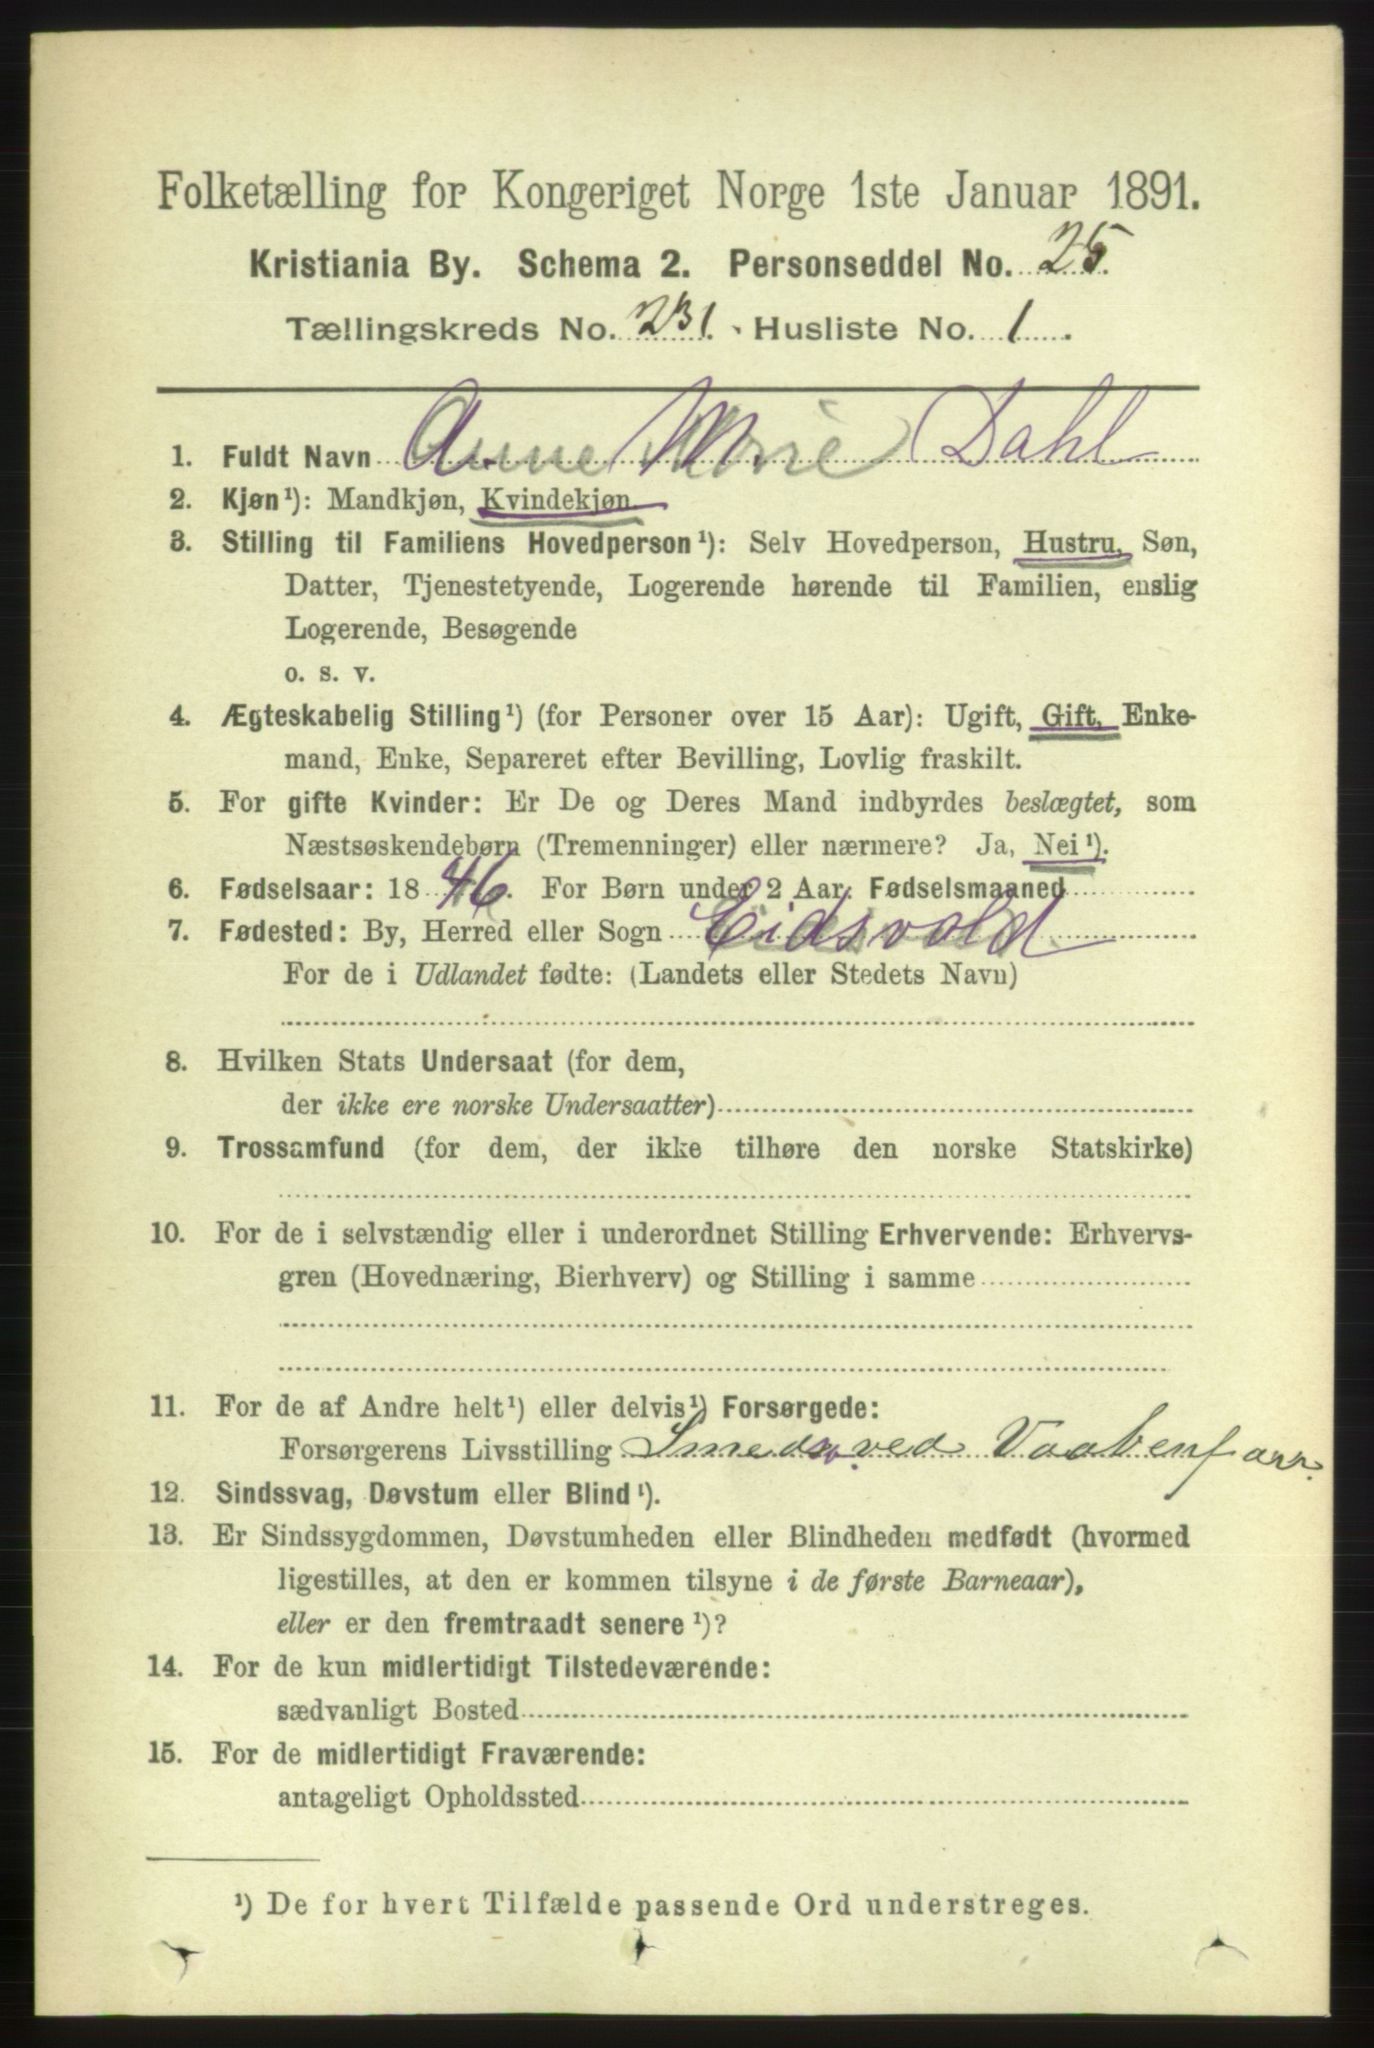 Folketælling for Kongeriget Norge 1ste Januar 1891.
Kristiania By. Schema 2. Personseddel No. 25
Tællingskreds No. 231. Husliste No. 1.
1. Fuldt Navn Anne Marie Dahl
2. Kjøn¹): Mandkjøn, Kvindekjøn
3. Stilling til Familiens Hovedperson¹): Selv Hovedperson, Hustru, Søn,
Datter, Tjenestetyende, Logerende hørende til Familien, enslig
Logerende, Besøgende
o. s. v.
4. Ægteskabelig Stilling¹) (for Personer over 15 Aar): Ugift, Gift, Enke-
mand, Enke, Separeret efter Bevilling, Lovlig fraskilt.
5. For gifte Kvinder: Er De og Deres Mand indbyrdes beslægtet, som
Næstsøskendebørn (Tremenninger) eller nærmere? Ja, Nei¹).
6. Fødselsaar: 1846. For Børn under 2 Aar. Fødselsmaaned
7. Fødested: By, Herred eller Sogn Eidsvold
For de i Udlandet fødte: (Landets eller Stedets Navn)
8. Hvilken Stats Undersaat (for dem,
der ikke ere norske Undersaatter)
9. Trossamfund (for dem, der ikke tilhøre den norske Statskirke)
10. For de i selvstændig eller i underordnet Stilling Erhvervende: Erhvervs-
gren (Hovednæring, Bierhverv) og Stilling i samme
11. For de af Andre helt¹) eller delvis¹) Forsørgede:
Forsørgerens Livsstilling Smedsv. ved Vaabenfarr.
12. Sindssvag, Døvstum eller Blind¹).
13. Er Sindssygdommen, Døvstumheden eller Blindheden medfødt (hvormed
ligestilles, at den er kommen tilsyne i de første Barneaar),
eller er den fremtraadt senere¹)?
14. For de kun midlertidigt Tilstedeværende:
sædvanligt Bosted
15. For de midlertidigt Fraværende:
antageligt Opholdssted
¹) De for hvert Tilfælde passende Ord understreges.